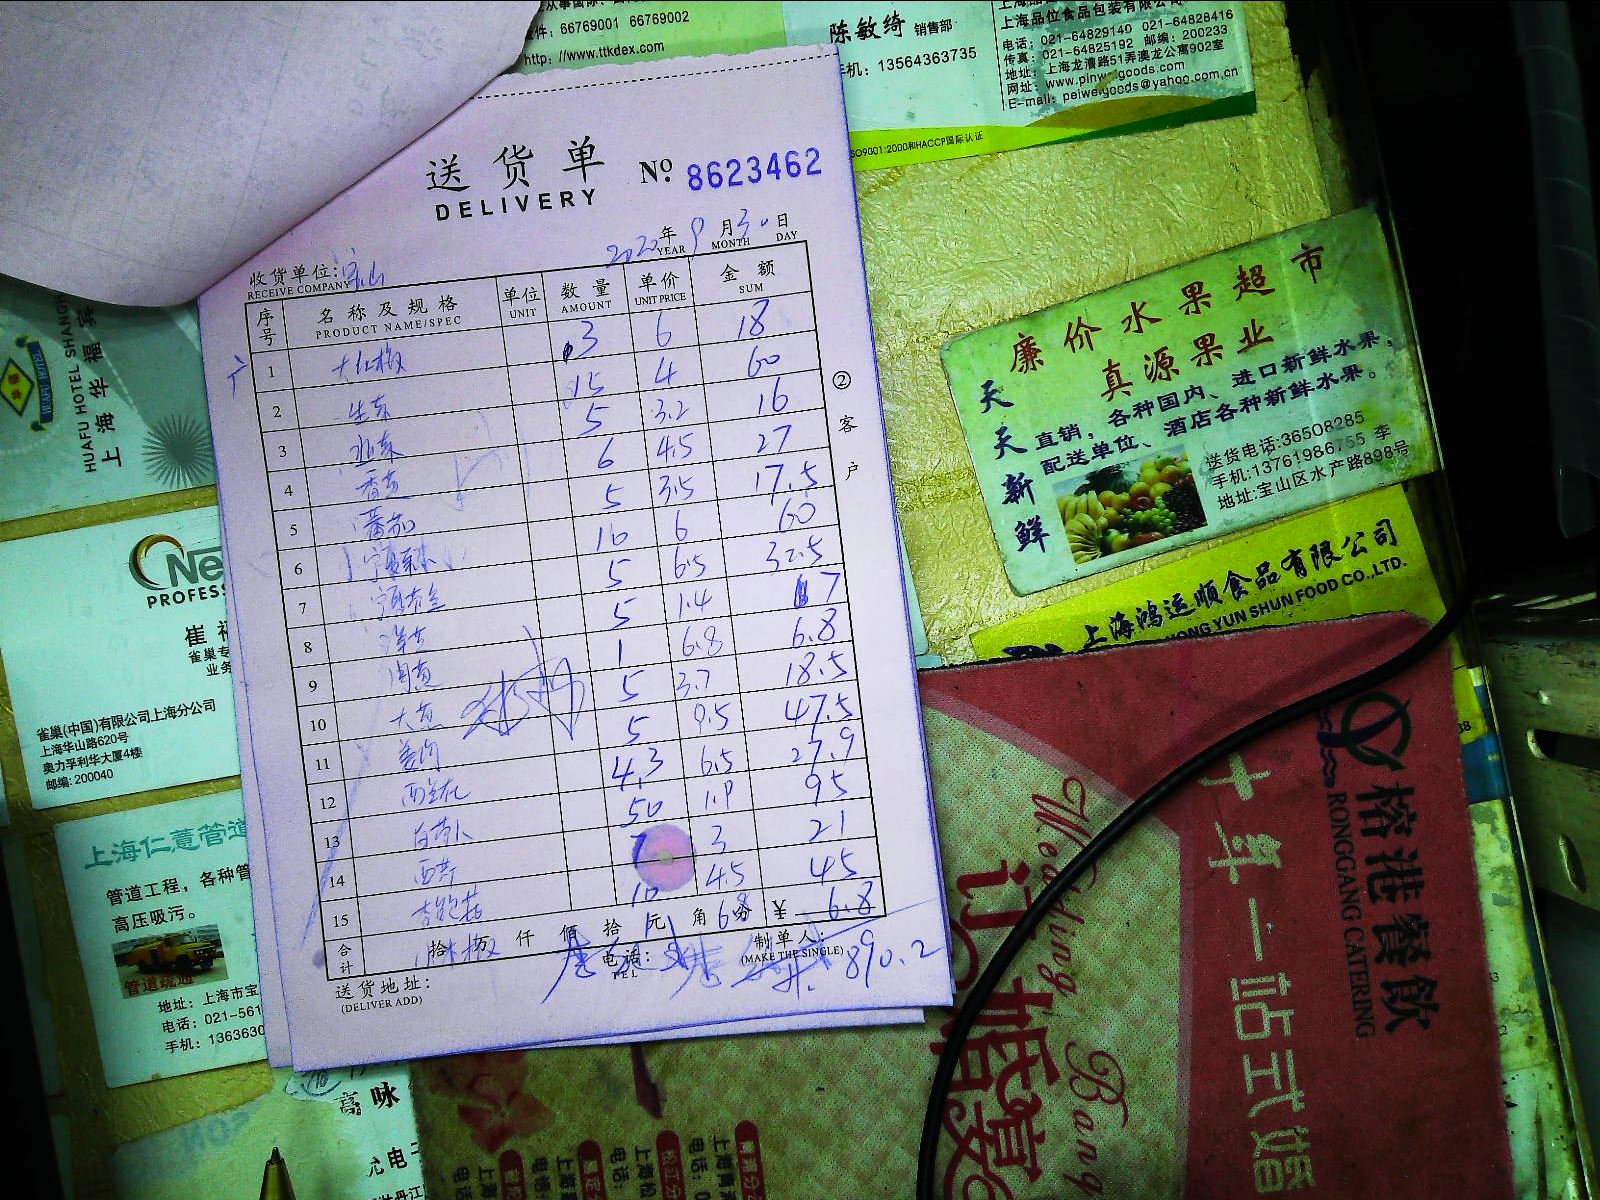 件: 66769001 66769002
http://www.ttkdex.com
陈敏绮 销售部
手机: 13564363735
上海品位食品包装有限公司
电话: 021-64829140 021-64828416
传真: 021-64825192 邮编: 200233
地址: 上海龙漕路51弄澳龙公寓902室
网址: www.pinweigoods.com
E-mail: peiweigoods@yahoo.com.cn
ISO9001:2000和HACCP国际认证
送货单
DELIVERY
No. 8623462
2020年9月30日
YEAR MONTH DAY
收货单位: 宝山
RECEIVE COMPANY
序号 名称及规格 单位 数量 单价 金额
PRODUCT NAME/SPEC UNIT AMOUNT UNIT PRICE SUM
1 大红椒 3 6 18
2 生菜 15 4 60
3 5 3.2 16
4 香菜 6 4.5 27
5 番茄 5 3.5 17.5
6 10 6 60
7 5 6.5 32.5
8 洋芋 5 1.4 7
9 1 6.8 6.8
10 大葱 5 3.7 18.5
11 5 9.5 47.5
12 西兰花 4.3 6.5 27.9
13 50 1.9 95
14 西芹 7 3 21
15 杏鲍菇 10 4.5 45
合计 拾 万 仟 佰 拾 元 角 分 ¥
1 6.8 6.8
送货地址:
(DELIVER ADD)
电话:
TEL
制单人:
(MAKE THE SINGLE)
890.2
②客户
HUAFU HOTEL SHANGHAI
上海华福宾
Ne
PROFESS
崔
雀巢专
业务
雀巢(中国)有限公司上海分公司
上海华山路620号
奥力孚利华大厦4楼
邮编: 200040
上海仁薏管道
管道工程,各种管
高压吸污。
管道疏通
地址: 上海市宝
电话: 021-561
手机: 1363630
高咏
廉价水果超市
真源果业
天天新鲜
直销,各种国内、进口新鲜水果,
配送单位、酒店各种新鲜水果。
送货电话:36508285
手机:13761986755 李
地址:宝山区水产路898号
上海鸿运顺食品有限公司
HONG YUN SHUN FOOD CO.,LTD.
榕港餐飲
RONGGANG CATERING
十年一站式婚
Wedding Bang
订婚宴